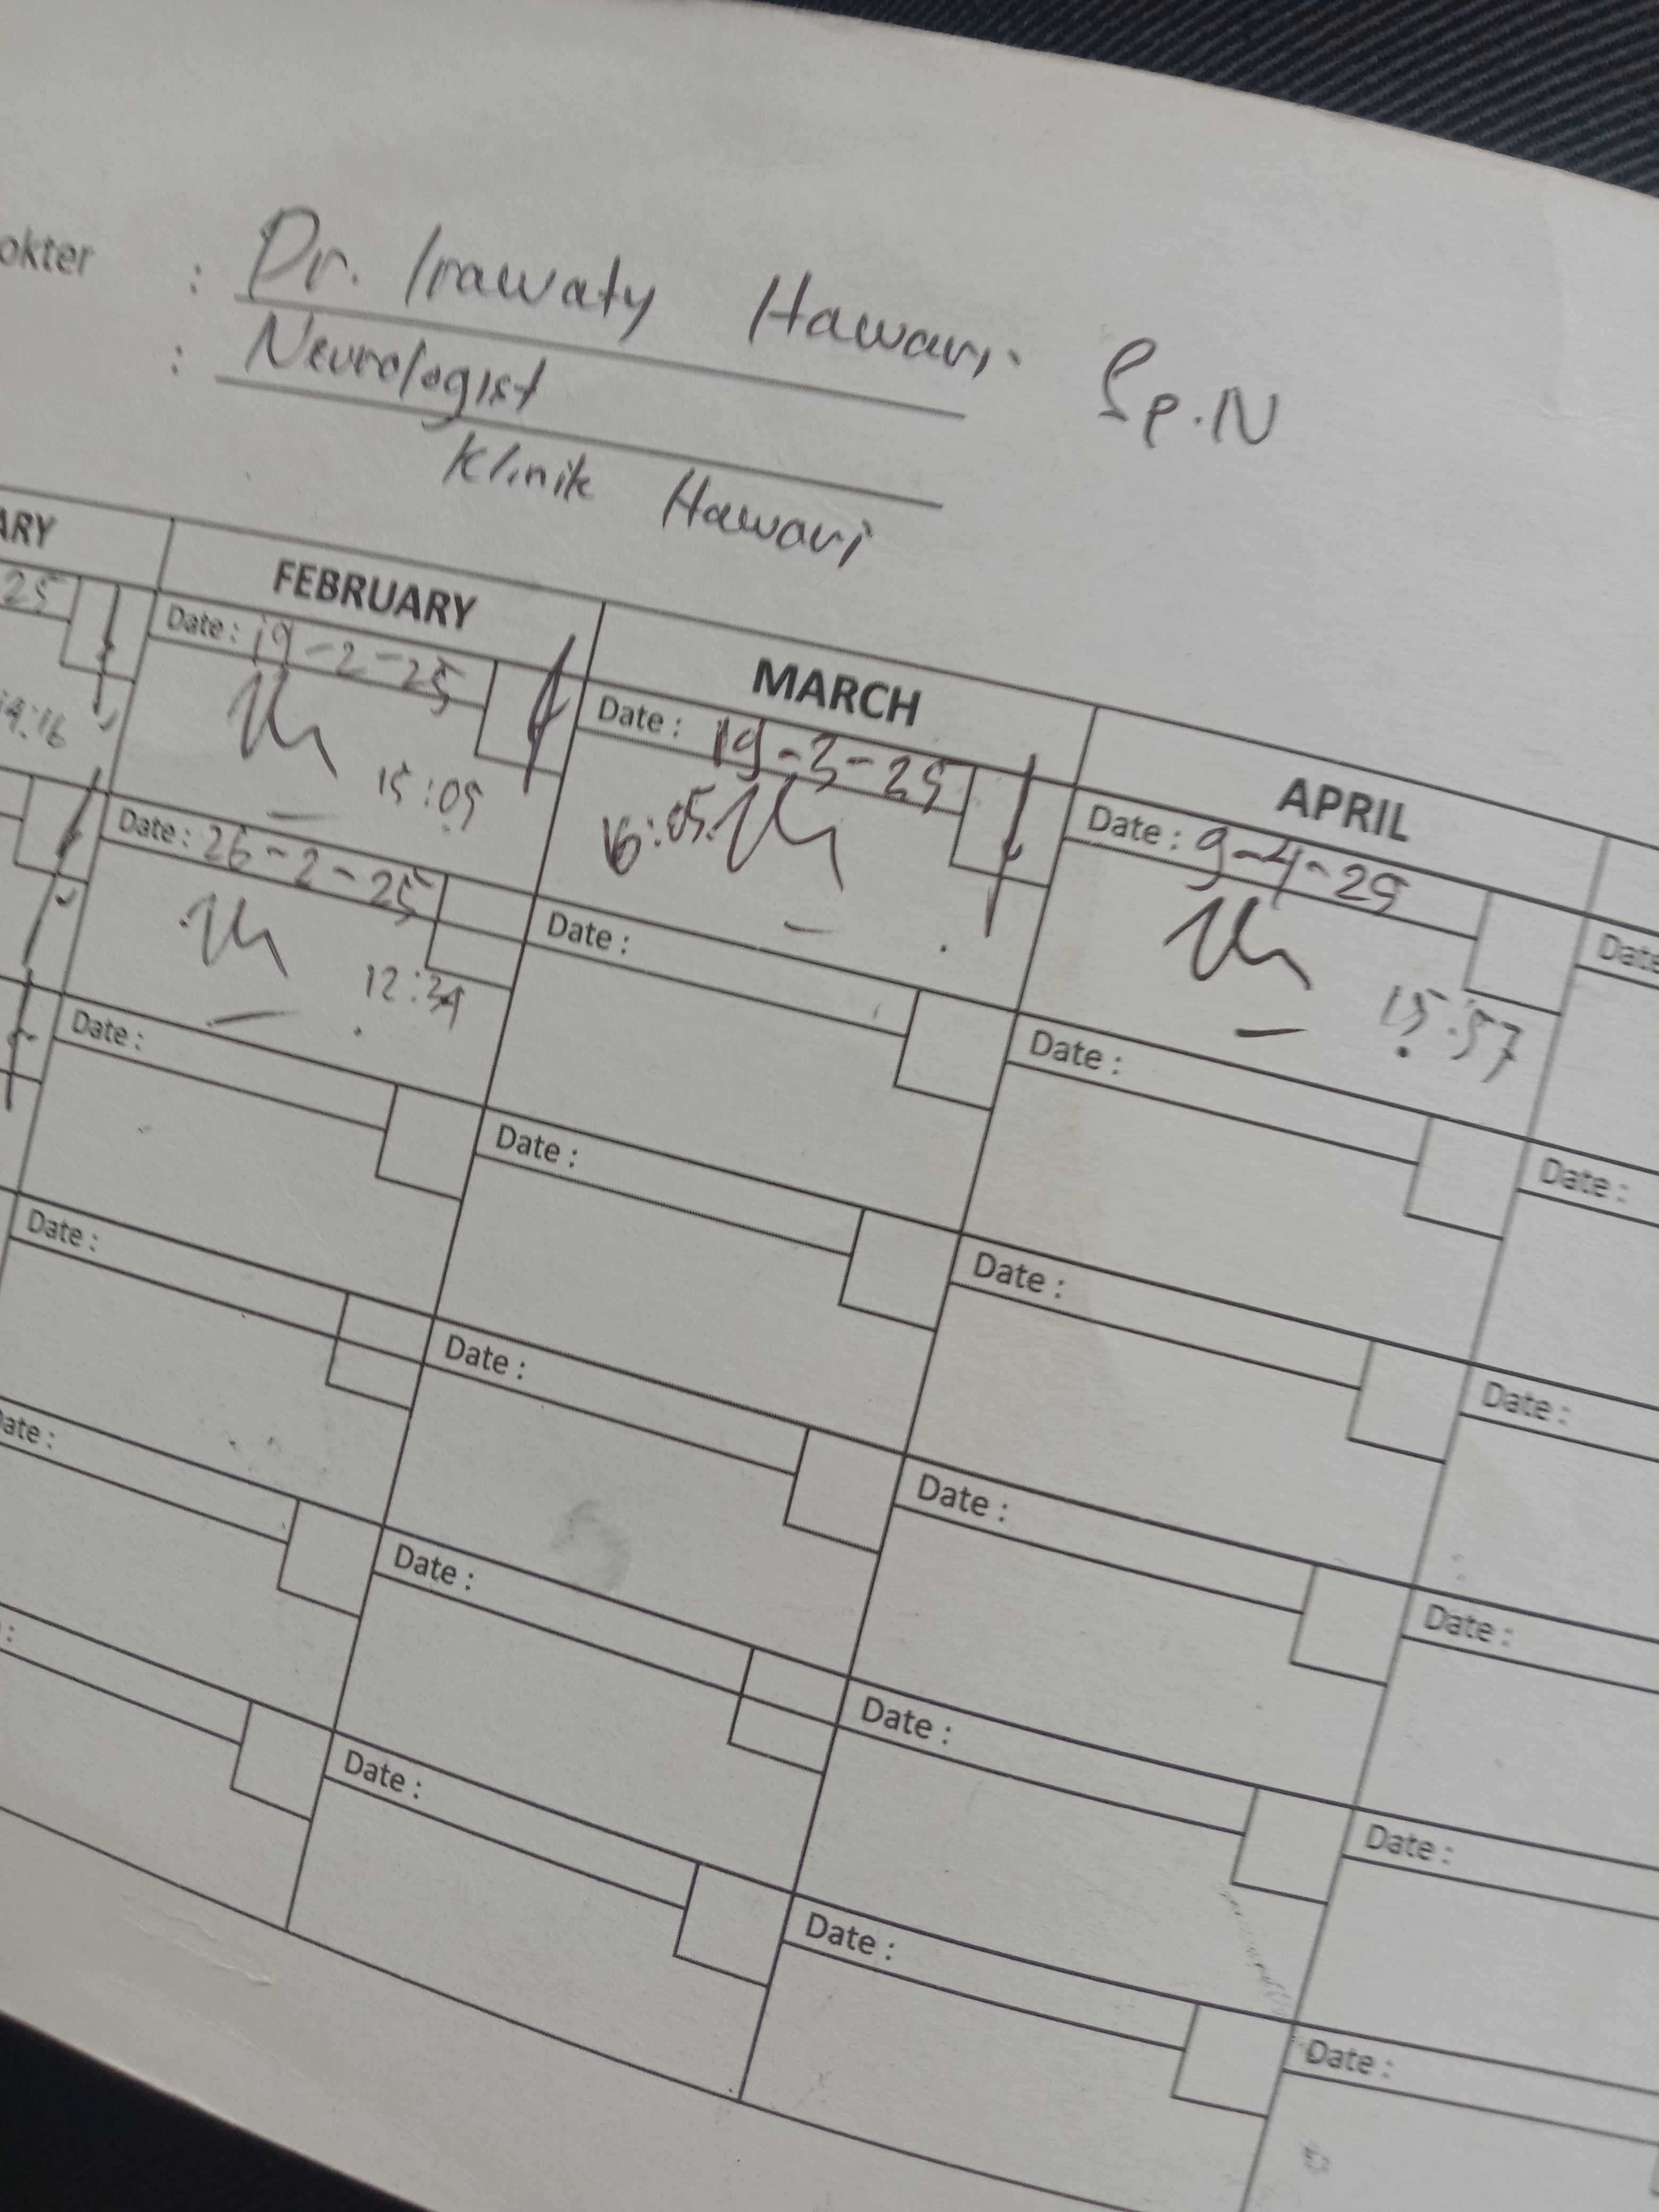 okter : Dr. Irawaty Hawari, Sp.N
: Neurologist
Klinik Hawari
ARY
25
14:16
FEBRUARY
Date : 19-2-25
15:05
Date : 26-2-25
12:34
Date :
Date :
Date :
MARCH
Date : 19-3-25
16:05
Date :
Date :
Date :
Date :
Date :
APRIL
Date : 9-4-25
15:57
Date :
Date :
Date :
Date :
Date :
Date
Date :
Date :
Date :
Date :
Date :